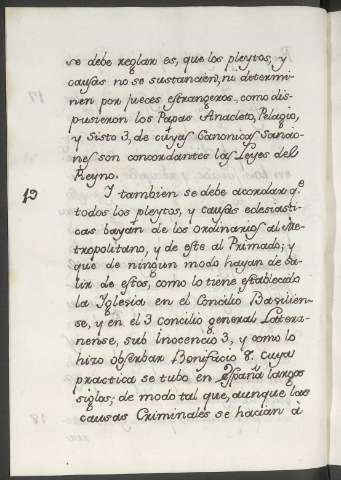 se debe reglar es, que los pleytos, y
causas no se sustancien, ni determi-
nen por jueces estrangeros, como dis-
pusieron los Papas Anacleto, Pelagio,
y Sisto 3, de cuyas Canonicas Sancio-
nes son concordantes las Leyes del
Reyno.
19 Y tambien se debe acordar q.e
todos los pleytos, y causas eclesiasti-
cas bayan de los ordinarios al Me-
tropolitano, y de este al Primado; y
que de ningun modo hayan de sa-
lir de estos, como lo tiene establecido
la Iglesia en el Concilio Basilien-
se, y en el 3 concilio general Latera-
nense, sub Inocencio 3, y como lo
hizo observar Bonifacio 8. cuya
practica se tubo en España largos
siglos; de modo tal que, aunque las
causas Criminales se hacian à